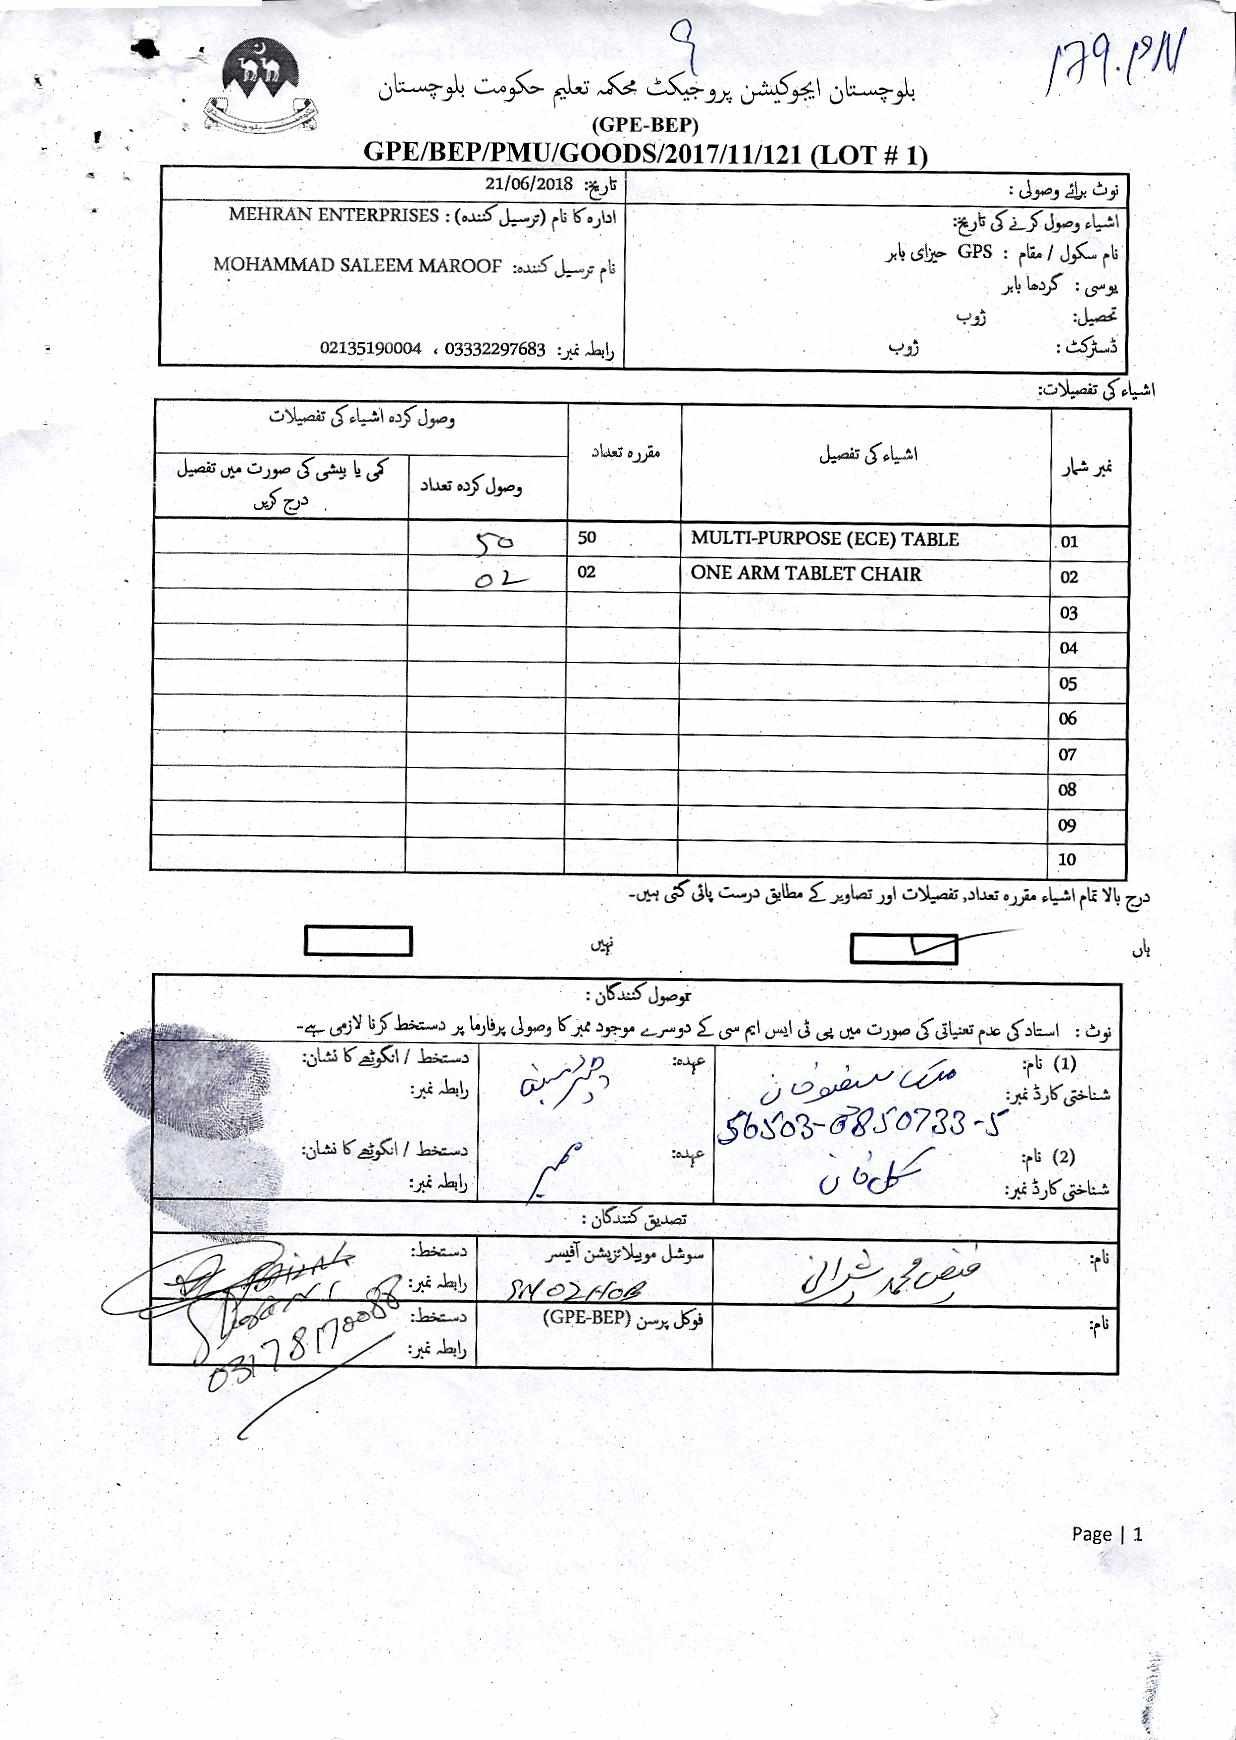 9
بلوچستان ایجوکیشن پروجیکٹ محکمہ تعلیم حکومت بلوچستان
(GPE-BEP)
GPE/BEP/PMU/GOODS/2017/11/121 (LOT # 1)
نوٹ برائے وصولی :
اشیاء وصول کرنے کی تاریخ:
نام سکول / مقام : GPS حیزای بابر
یوسی : گردھا بابر
تحصیل: ژوب
ڈسٹرکٹ : ژوب
تاریخ: 21/06/2018
ادارہ کا نام (ترسیل کنندہ) : MEHRAN ENTERPRISES
نام ترسیل کنندہ: MOHAMMAD SALEEM MAROOF
رابطہ نمبر: 03332297683 ، 02135190004
اشیاء کی تفصیلات:
نمبر شمار اشیاء کی تفصیل مقررہ تعداد وصول کردہ اشیاء کی تفصیلات
وصول کردہ تعداد کمی یا بیشی کی صورت میں تفصیل
درج کریں
01 MULTI-PURPOSE (ECE) TABLE 50 50
02 ONE ARM TABLET CHAIR 02 02
03
04
05
06
07
08
09
10
درج بالا تمام اشیاء مقررہ تعداد, تفصیلات اور تصاویر کے مطابق درست پائی گئی ہیں۔
ہاں نہیں
وصول کنندگان :
نوٹ : استاد کی عدم تعنیاتی کی صورت میں پی ٹی ایس ایم سی کے دوسرے موجود ممبر کا وصولی پرفارما پر دستخط کرنا لازمی ہے۔
(1) نام: ملک خان عہدہ: دستخط / انگوٹھے کا نشان:
شناختی کارڈ نمبر: رابطہ نمبر:
56503-0850733-5
(2) نام: گل خان عہدہ: ممبر دستخط / انگوٹھے کا نشان:
شناختی کارڈ نمبر: رابطہ نمبر:
تصدیق کنندگان :
نام: فیض محمد شیرانی سوشل موبیلائزیشن آفیسر دستخط:
رابطہ نمبر:
نام: فوکل پرسن (GPE-BEP) دستخط:
رابطہ نمبر:
03178170088
Page | 1